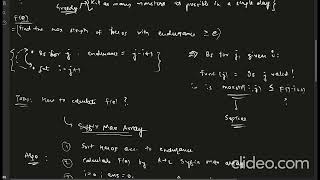 Greedy
Kill as many monsters as possible in a single day
F(e)
Find the max strength of heros with endurance ≥ e
Os for j endurance = j-i+1
Set i = j+1
Os for j, given i:
func(j) = Is j valid?
is max(M[i..j]) ≤ F(j-i+1)
SegTree
TODO: How to calculate F(e)?
Suffix Max Array
Algo:
① Sort heros acc. to endurance
② Calculate F(e) by Suffix max array
③ i=0; ans=0
clideo.com